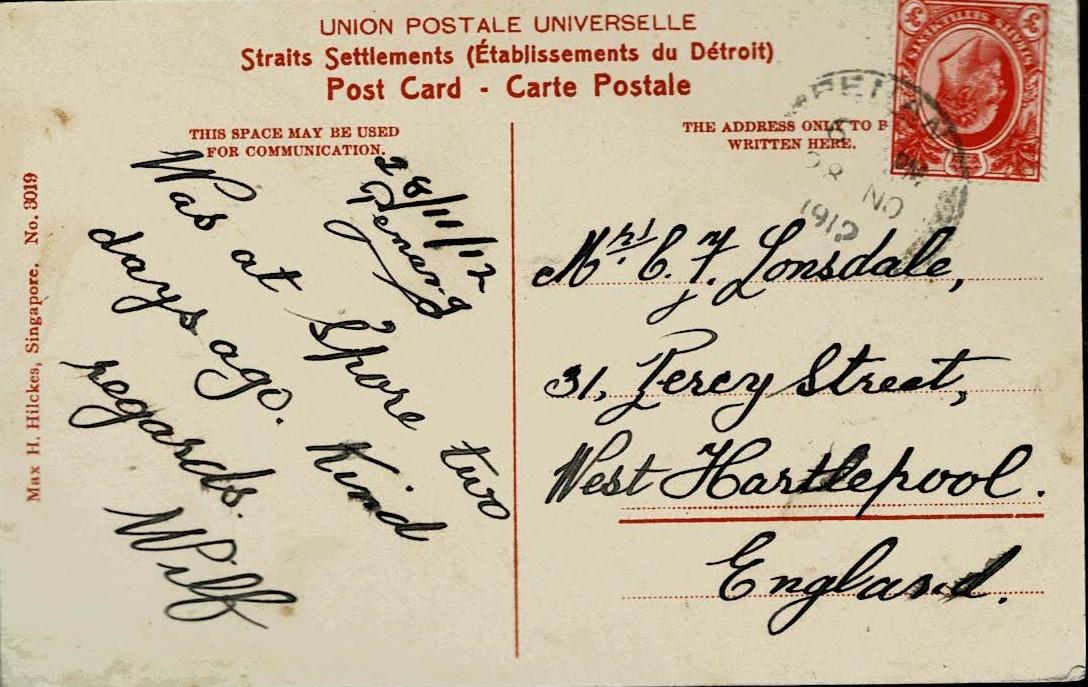 UNION POSTALE UNIVERSELLE
Straits Settlements (Établissements du Détroit)
Post Card - Carte Postale
THIS SPACE MAY BE USED
FOR COMMUNICATION.
THE ADDRESS ONLY TO B
WRITTEN HERE.
Max H. Hilckes, Singapore. No. 3019
28/11/12
Penang
Was at Spore two
days ago. Kind
regards.
Wilf
PENAN
NO
1912
STRAITS SETTLEMENTS
Mrs. C. F. Lonsdale,
31, Percy Street,
West Hartlepool.
England.